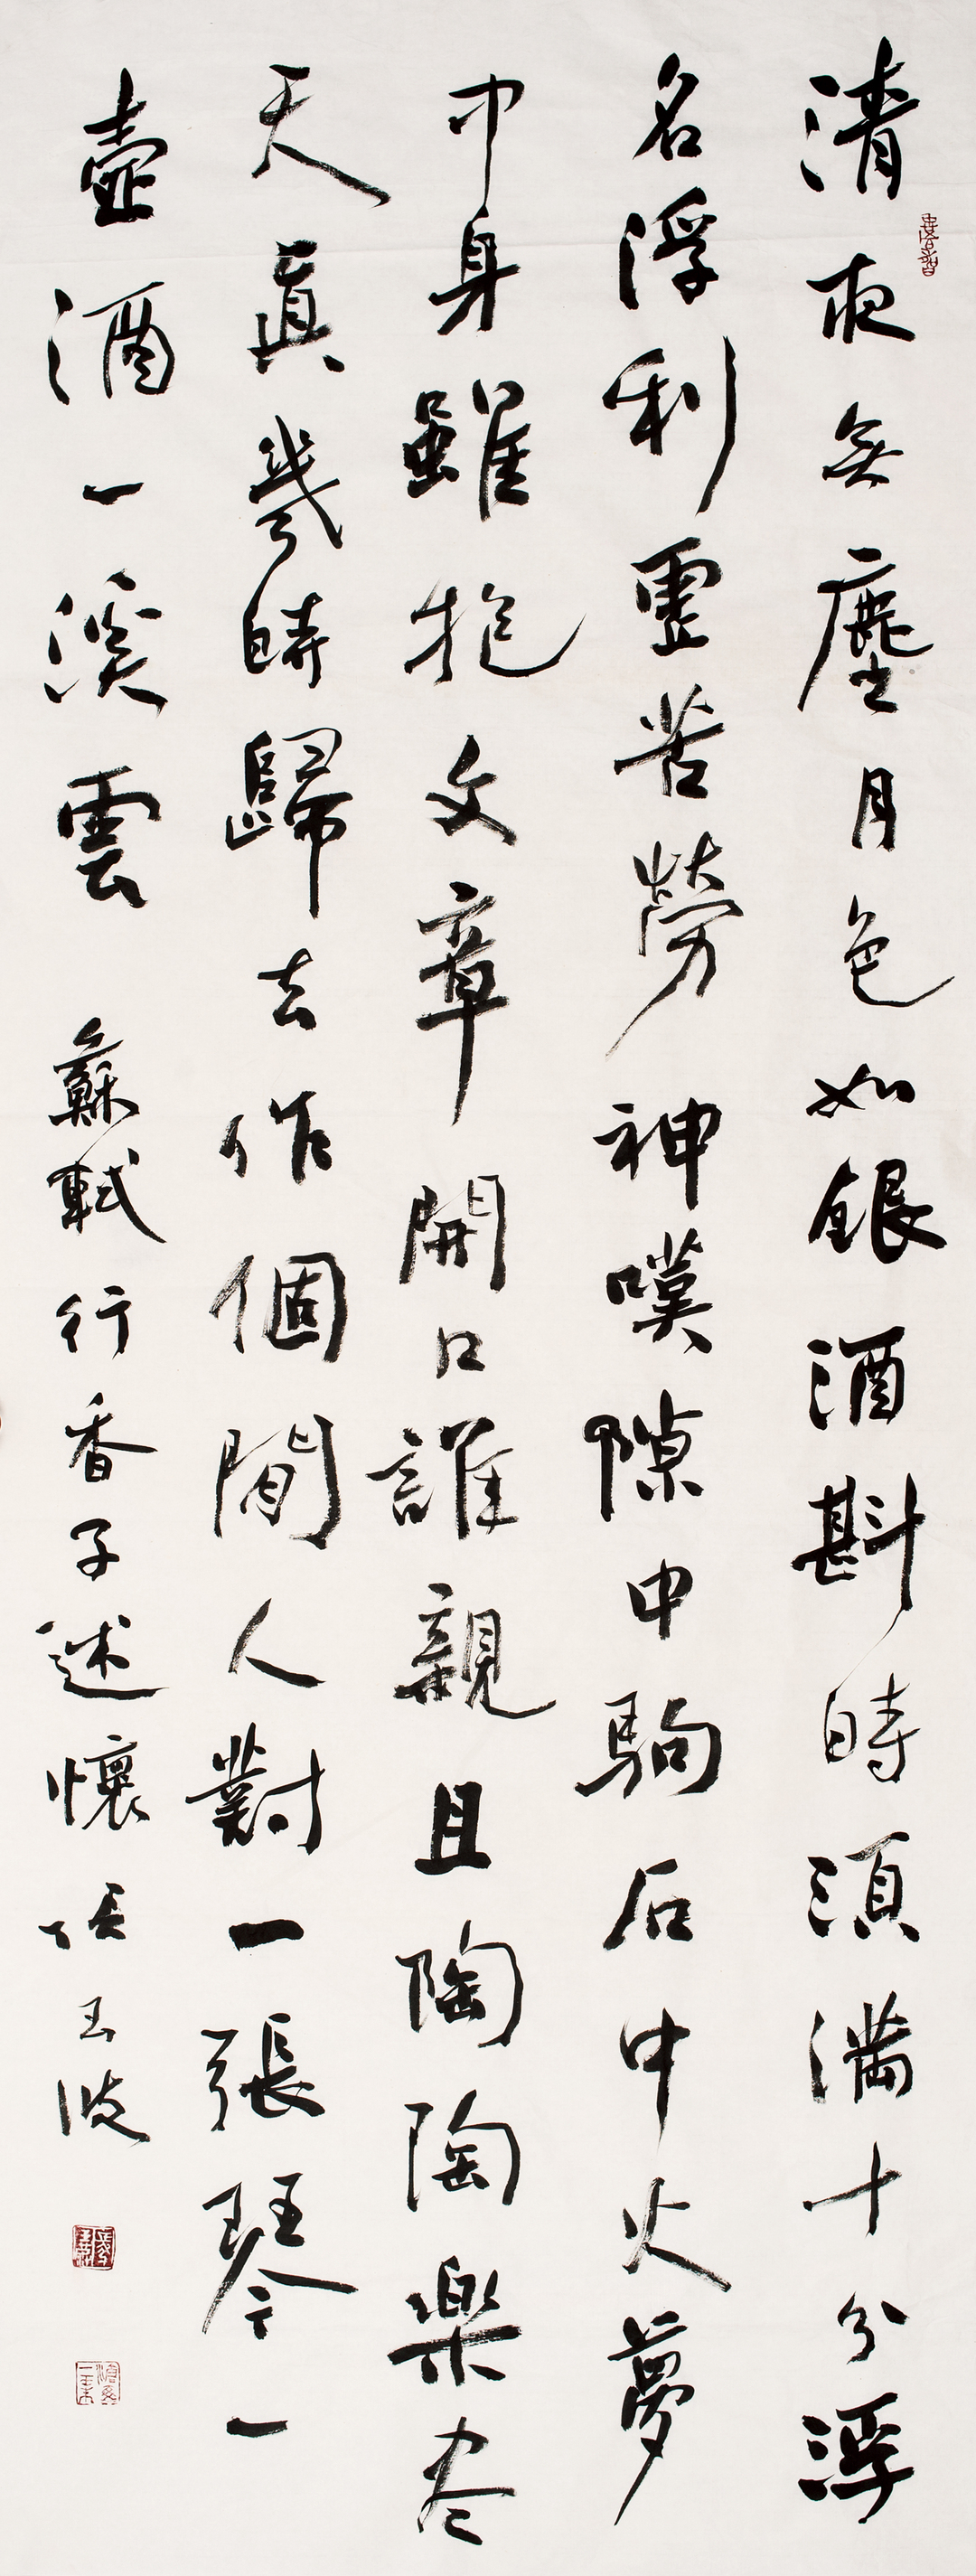 清夜無塵月色如銀酒斟時須滿十分浮
名浮利虛苦勞神嘆隙中駒石中火夢
中身雖抱文章開口誰親且陶陶樂尽
天真幾時歸去作個閒人對一張琴一
壺酒一溪雲 蘇軾行香子述懷 張玉波